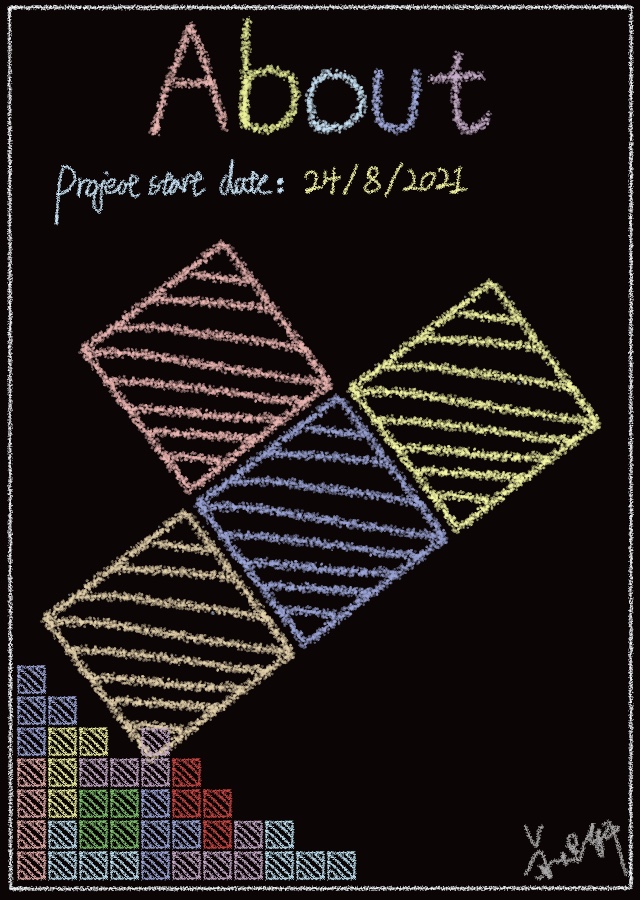 About
Project start date: 24/8/2021